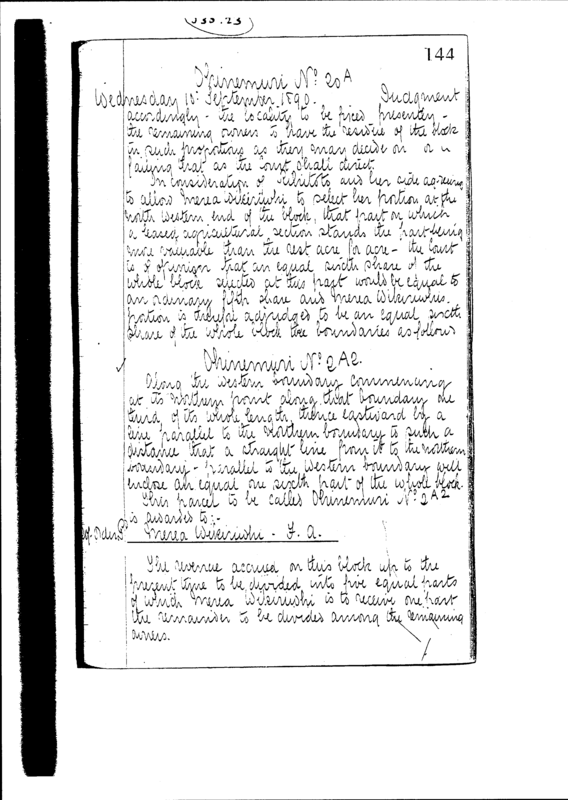 J33.23
144
Ohinemuri No 20A
Wednesday 10th September 1890. Judgment
accordingly - the locality to be fixed presently -
the remaining owners to have the residue of the block
in such proportions as they may decide on or in
failing that as the Court shall direct.
In consideration of and her side agreeing
to allow Merea Wikiriwhi to select her portion at the
North Western end of the block, that part on which
a leased agricultural section stands the part being
more valuable than the rest acre for acre - the Court
is of opinion that an equal sixth share of the
whole block selected at this part would be equal to
an ordinary fifth share and Merea Wikiriwhi's
portion is therefore adjudged to be an equal sixth
share of the whole block the boundaries as follows
Ohinemuri No 2A2.
Along the Western boundary commencing
at its Northern point along that boundary one
third of its whole length, thence eastward by a
line parallel to the Northern boundary to such a
distance that a straight line from it to the northern
boundary - parallel to the Western boundary will
enclose an equal one sixth part of the whole block.
This parcel to be called Ohinemuri No 2A2
is awarded to:-
Merea Wikiriwhi - F. A.
The revenue accrued on this block up to the
present time to be divided into five equal parts
of which Merea Wikiriwhi is to receive one part
the remainder to be divided among the remaining
owners.